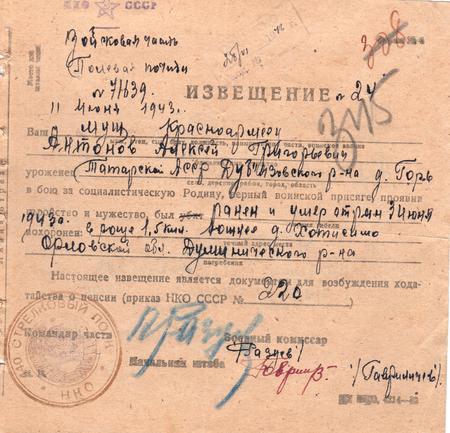 НКО СССР
308
Войсковая часть
Полевая почта
№ 71639.
ИЗВЕЩЕНИЕ № 24
11 июня 1943.
345
Ваш муж Красноармеец
Антонов Алексей Григорьевич
уроженец Татарской АССР Дубъязского р-на д.
в бою за социалистическую Родину, верный воинской присяге, проявив
геройство и мужество, был убит ранен и умер от ран 7 июня
1943 г.
похоронен: в роще 1,5 клм. д. Хотисино
Орловской обл. Думиничского р-на
погребения
Настоящее извещение является документом для возбуждения хода-
тайства о пенсии (приказ НКО СССР № 220
Командир части
Военный комиссар
Начальник штаба
/Гавриличев/
СТРЕЛКОВЫЙ ПОЛК
НКО
М. П.